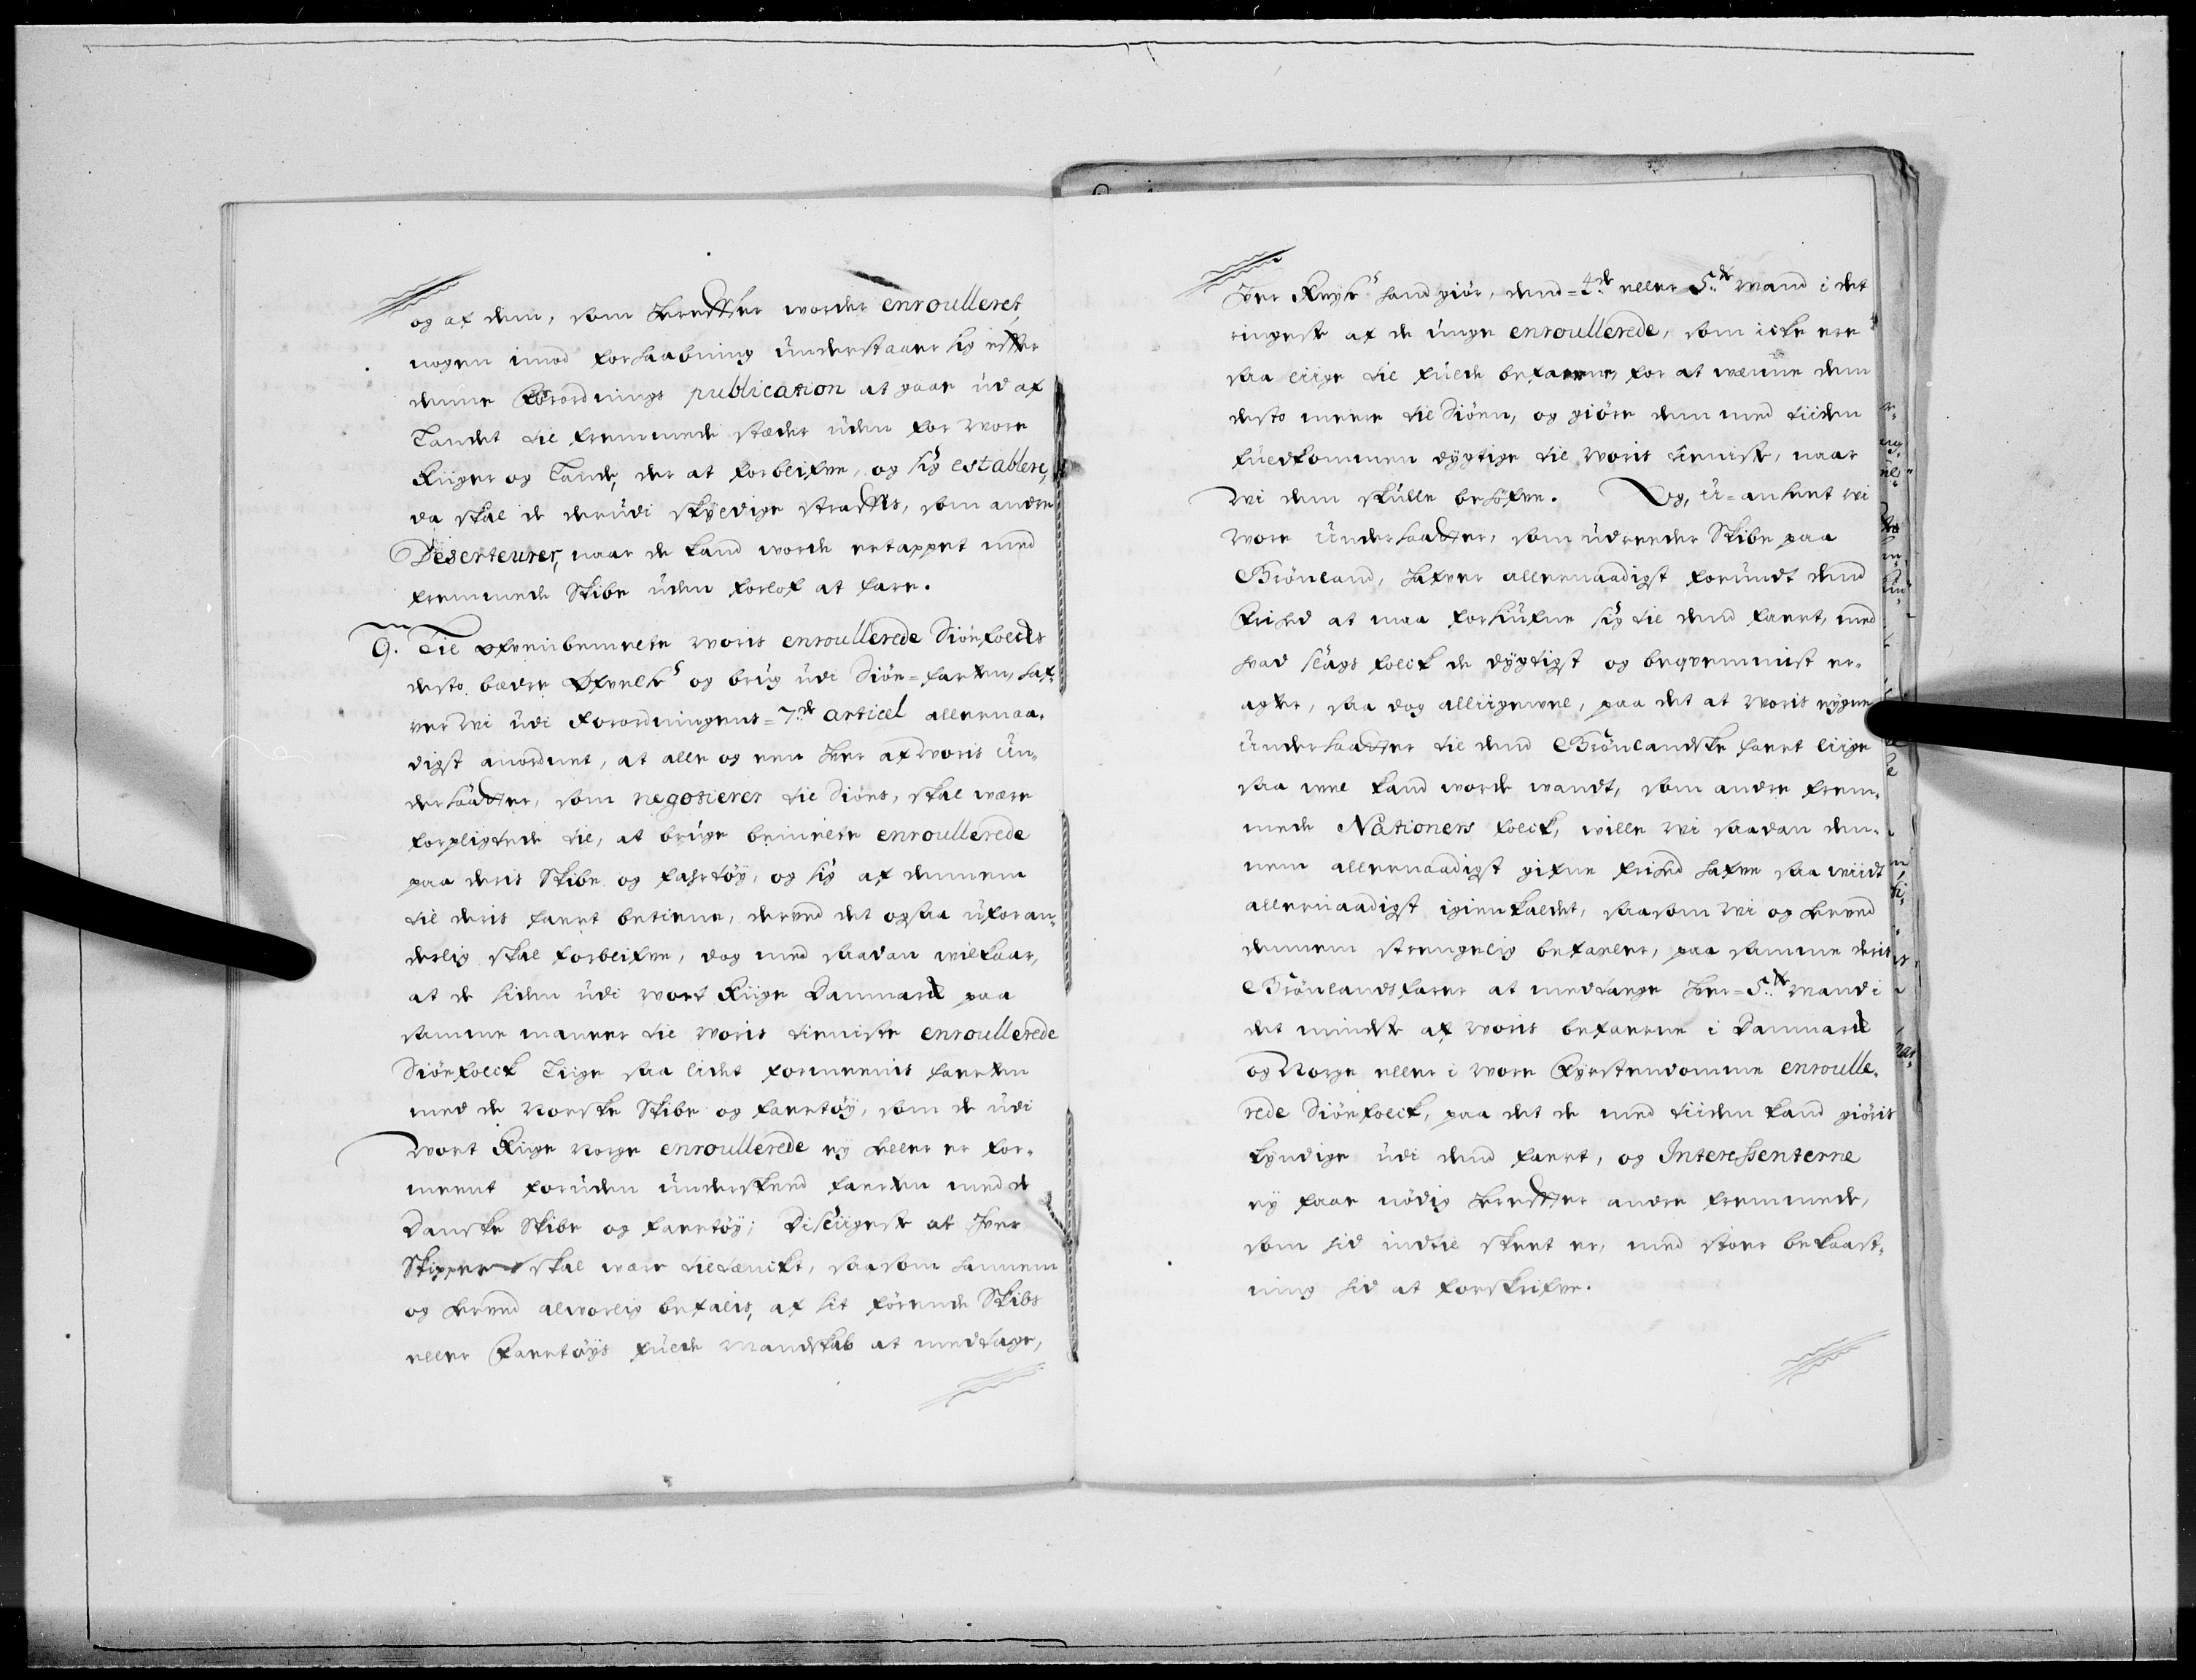 og af dem, som hereffter worder enroulleret,
nogen imod forhaabning understaaer sig effter
denne Forordnings publication at gaae ud af
Landet til fremmede stæder uden for Wore
Riiger og Lande, der at forblifve, og sig establere,
da skal de derudi skyldige straffis, som andre
Deserteurer, naar de kand worde ertappet med
fremmede Skibe uden forlof at fare.
9. Til ofvenbemelte Woris enroullerede Siøefolckes
desto bædre Øfvelse og brug udi Siøe-farten, haf-
ver Wi udi Forordningens 7de articel allernaa-
digst anordnet, at alle og een hver af Woris Un-
dersaatter, som negotierer til Siøes, skal være
forpligtede til, at bruge bemelte enroullerede
paa deris Skibe og fahrtøy, og sig af dennem
til deris faert betiene, derved det ogsaa uforan-
derlig skal forblifve, dog med saadan wilkaar,
at de siden udi Wort Riige Danmarck paa
samme maneer til Woris tieniste enroullerede
Siøefolck Liige saa lidet formeenis faerten
med de Norske Skibe og faertøy, som de udi
Wort Riige Norge enroullerede ey heller er for-
meent foruden underskeed faerten med de
Danske Skibe og faertøy; Disliigeste at hver
Skipper skal være tiltænckt, saasom hannem
og herved alvorlig befalis, af sit førende Skibs
eller Faertøys fulde Mandskab at medtage,
hver Reyse hand giør, dend 4de eller 5te Mand i det
ringeste af de unge enroullerede, som icke ere
saa liige til fulde befarne, for at wænne dem
desto meere til Siøen, og giøre dem med tiiden
fuldkommen dygtige til Woris tieniste, naar
Wi dem skulle behøfve. Og, U-anseet Wi
Wore Undersaatter, som udreeder Skibe paa
Grønland, hafver allernaadigst forundt dend
Frihed at maa forsiufne sig til dend faert, med
hvad slags folck de dygtigst og beqvemmist er-
agter, saa dog alliigevel, paa det at Woris eygne
Undersaatter til dend Grønlandske faert liige
saa vel kand worde wandt, som andre frem-
mede Nationers folck, wille Wi saadan den-
nem allernaadigst gifne frihed hafve saa wiidt
allernaadigst igienkaldet, saasom Wi og herved
dennem strengelig befaeler, paa samme deris
Grønlandsfarer at medtage hver 5te Mand i
det mindste af Woris befaerne i Danmarck
og Norge eller i Wore Fyrstendomme enroulle-
rede Siøefolck, paa det de med tiiden kand giøris
kyndige udi dend faert, og Interessenterne
ey faae nødig hereffter andre fremmede,
som hid indtil skeet er, med stoer bekaast-
ning hid at forskrifve.